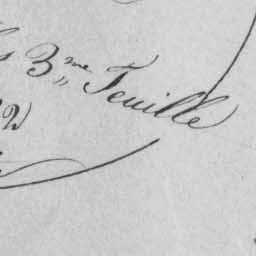 3me Feuille